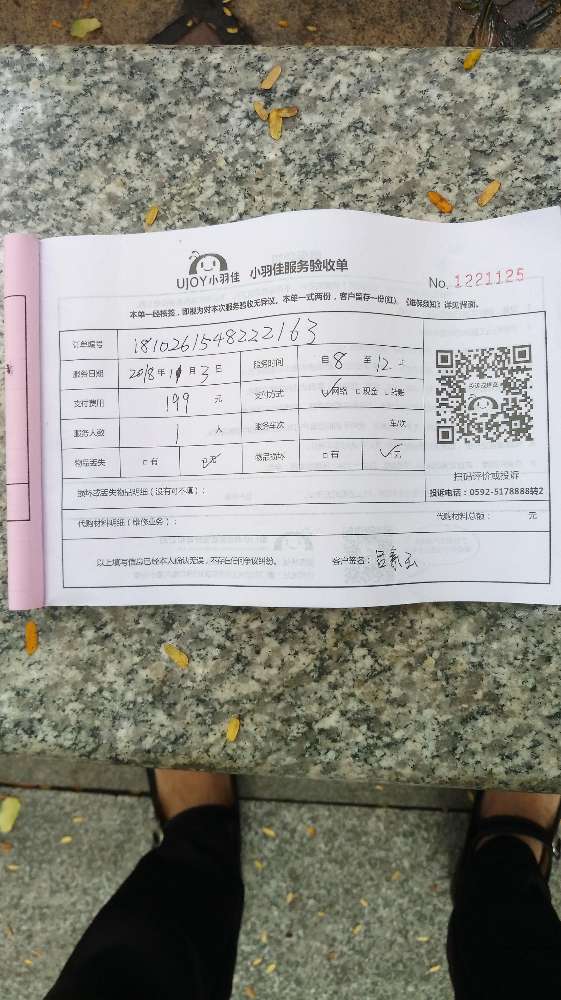 UJOY小羽佳 小羽佳服务验收单
No. 1221125
本单一经核签，即视为对本次服务验收无异议。本单一式两份，客户留存一份(红)。《维保须知》详见背面。
订单编号 1810261548222163
服务日期 2018年11月3日 服务时间 自8至12止
支付费用 199元 支付方式 ☑网络 □现金 □转账
服务人数 1人 服务车次 车/次
物品丢失 □有 ☑无 物品损坏 □有 ☑无
扫码评价或投诉
投诉电话：0592-5178888转2
损坏或丢失物品明细（没有可不填）：
代购材料明细（维修业务）： 代购材料总额： 元
以上填写信息已经本人确认无误，不存在任何争议纠纷。 客户签名：